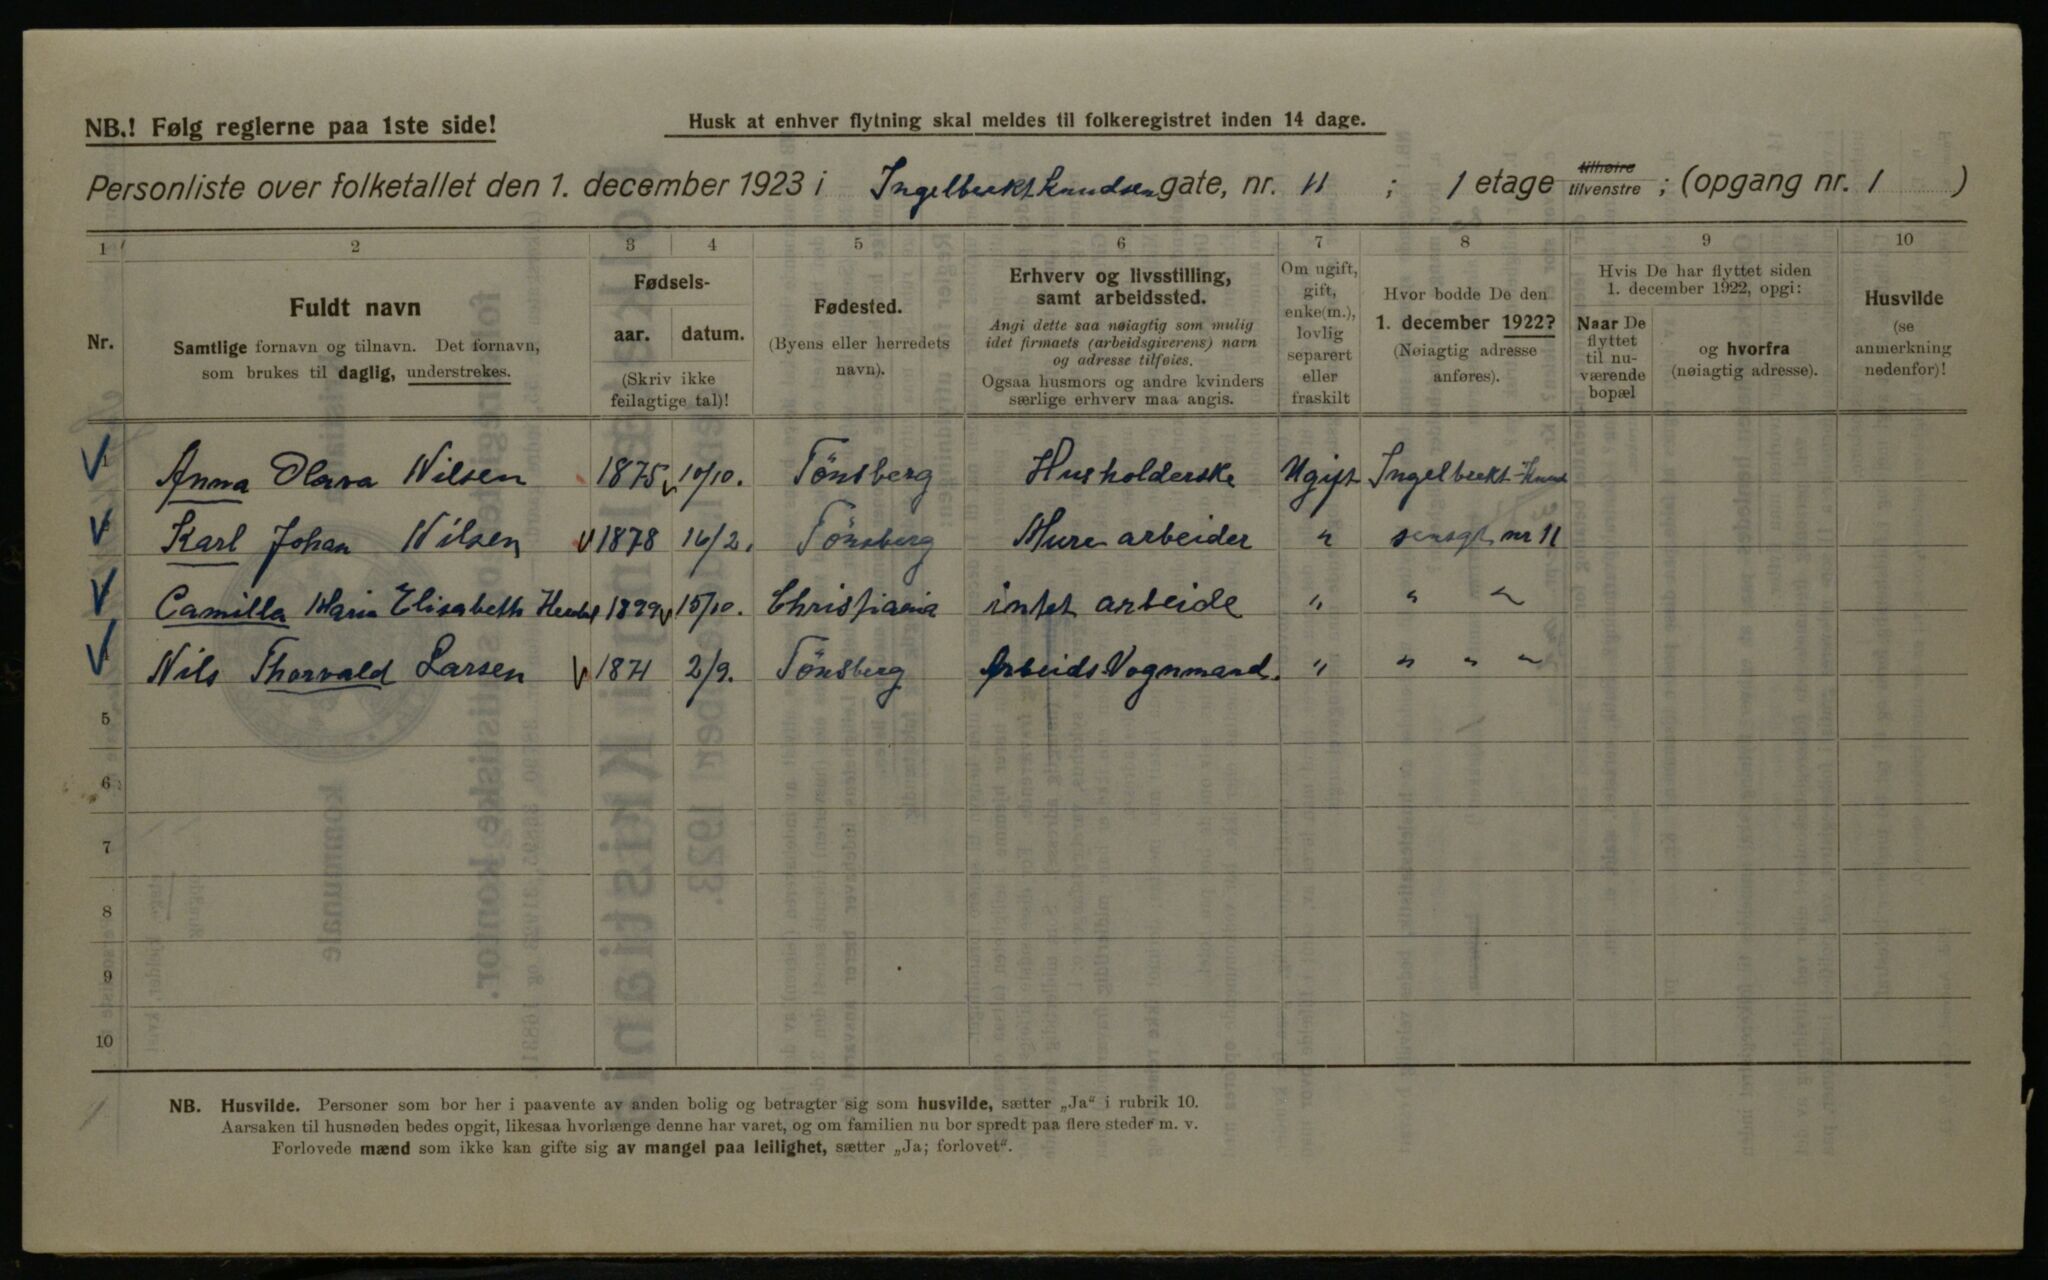 NB.! Følg reglerne paa 1ste side!
Husk at enhver flytning skal meldes til folkeregistret inden 14 dage.
Personliste over folketallet den 1. december 1923 i Ingelbrekt Knudsen gate, nr. 11 ; 1 etage tilhøire tilvenstre ; (opgang nr. 1 )
1 2 3 4 5 6 7 8 9 10
Nr.
Fuldt navn
Samtlige fornavn og tilnavn. Det fornavn,
som brukes til daglig, understrekes.
Fødsels-
aar. datum.
(Skriv ikke
feilagtige tal)!
Fødested.
(Byens eller herredets
navn).
Erhverv og livsstilling,
samt arbeidssted.
Angi dette saa nøiagtig som mulig
idet firmaets (arbeidsgiverens) navn
og adresse tilføies.
Ogsaa husmors og andre kvinders
særlige erhverv maa angis.
Om ugift,
gift,
enke(m.),
lovlig
separert
eller
fraskilt
Hvor bodde De den
1. december 1922?
(Nøiagtig adresse
anføres).
Hvis De har flyttet siden
1. december 1922, opgi:
Naar De
flyttet
til nu-
værende
bopæl
og hvorfra
(nøiagtig adresse).
Husvilde
(se
anmerkning
nedenfor)!
Anna Olava Nilsen 1875 10/10. Tönsberg Husholderske Ugift Ingelbrekt-Knud
Karl Johan Nilsen 1878 16/2. Tönsberg Mure arbeider " sensgt nr 11
Camilla Maria Elisabeth 1899 15/10. Christiania intet arbeide " " "
Nils Thorvald Larsen 1871 2/9. Tönsberg Arbeids Vognmand. " " " "
5
6
7
8
9
10
NB. Husvilde. Personer som bor her i paavente av anden bolig og betragter sig som husvilde, sætter „Ja“ i rubrik 10.
Aarsaken til husnøden bedes opgit, likesaa hvorlænge denne har varet, og om familien nu bor spredt paa flere steder m. v.
Forlovede mænd som ikke kan gifte sig av mangel paa leilighet, sætter „Ja; forlovet“.